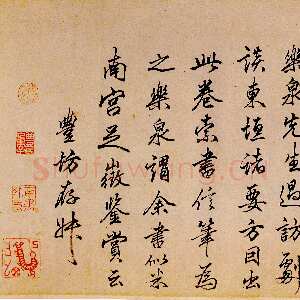 樂泉先生過訪劇
談東垣諸要方因出
此卷索書信筆為
之樂泉謂余書似米
南宮足徵鑒賞云
豐坊存叔